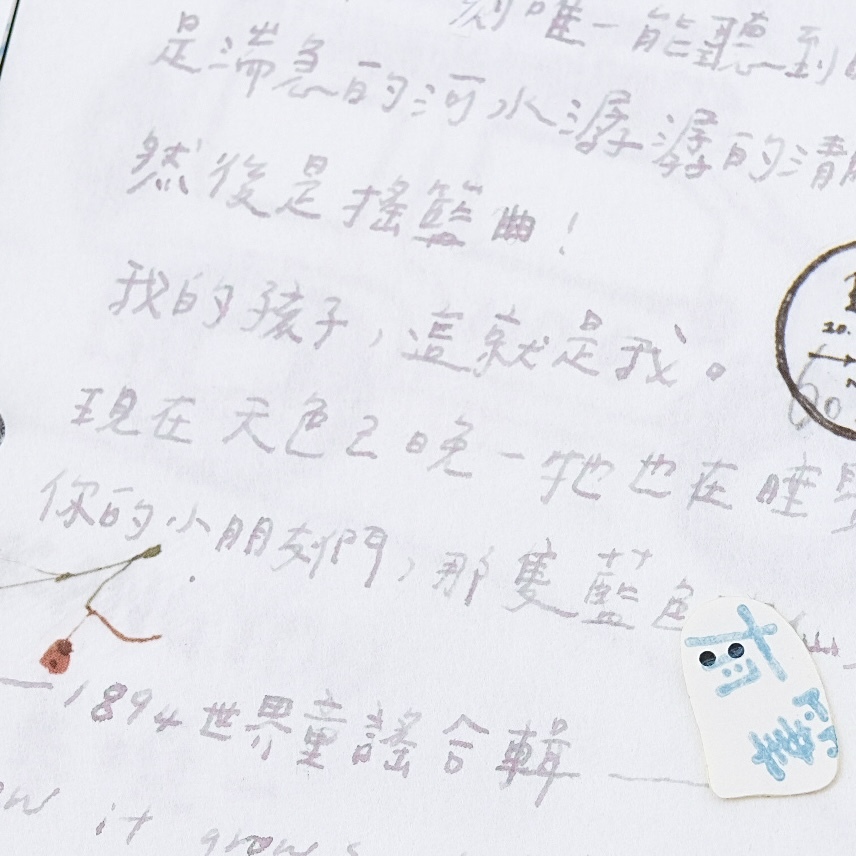 刻唯一能聽到
是湍急的河水潺潺的清
然後是搖籃曲！
我的孩子，這就是我。
現在 天色已晚－牠也在睡
你的小朋友們，那隻藍色
—1894世界童謠合輯—
it grows